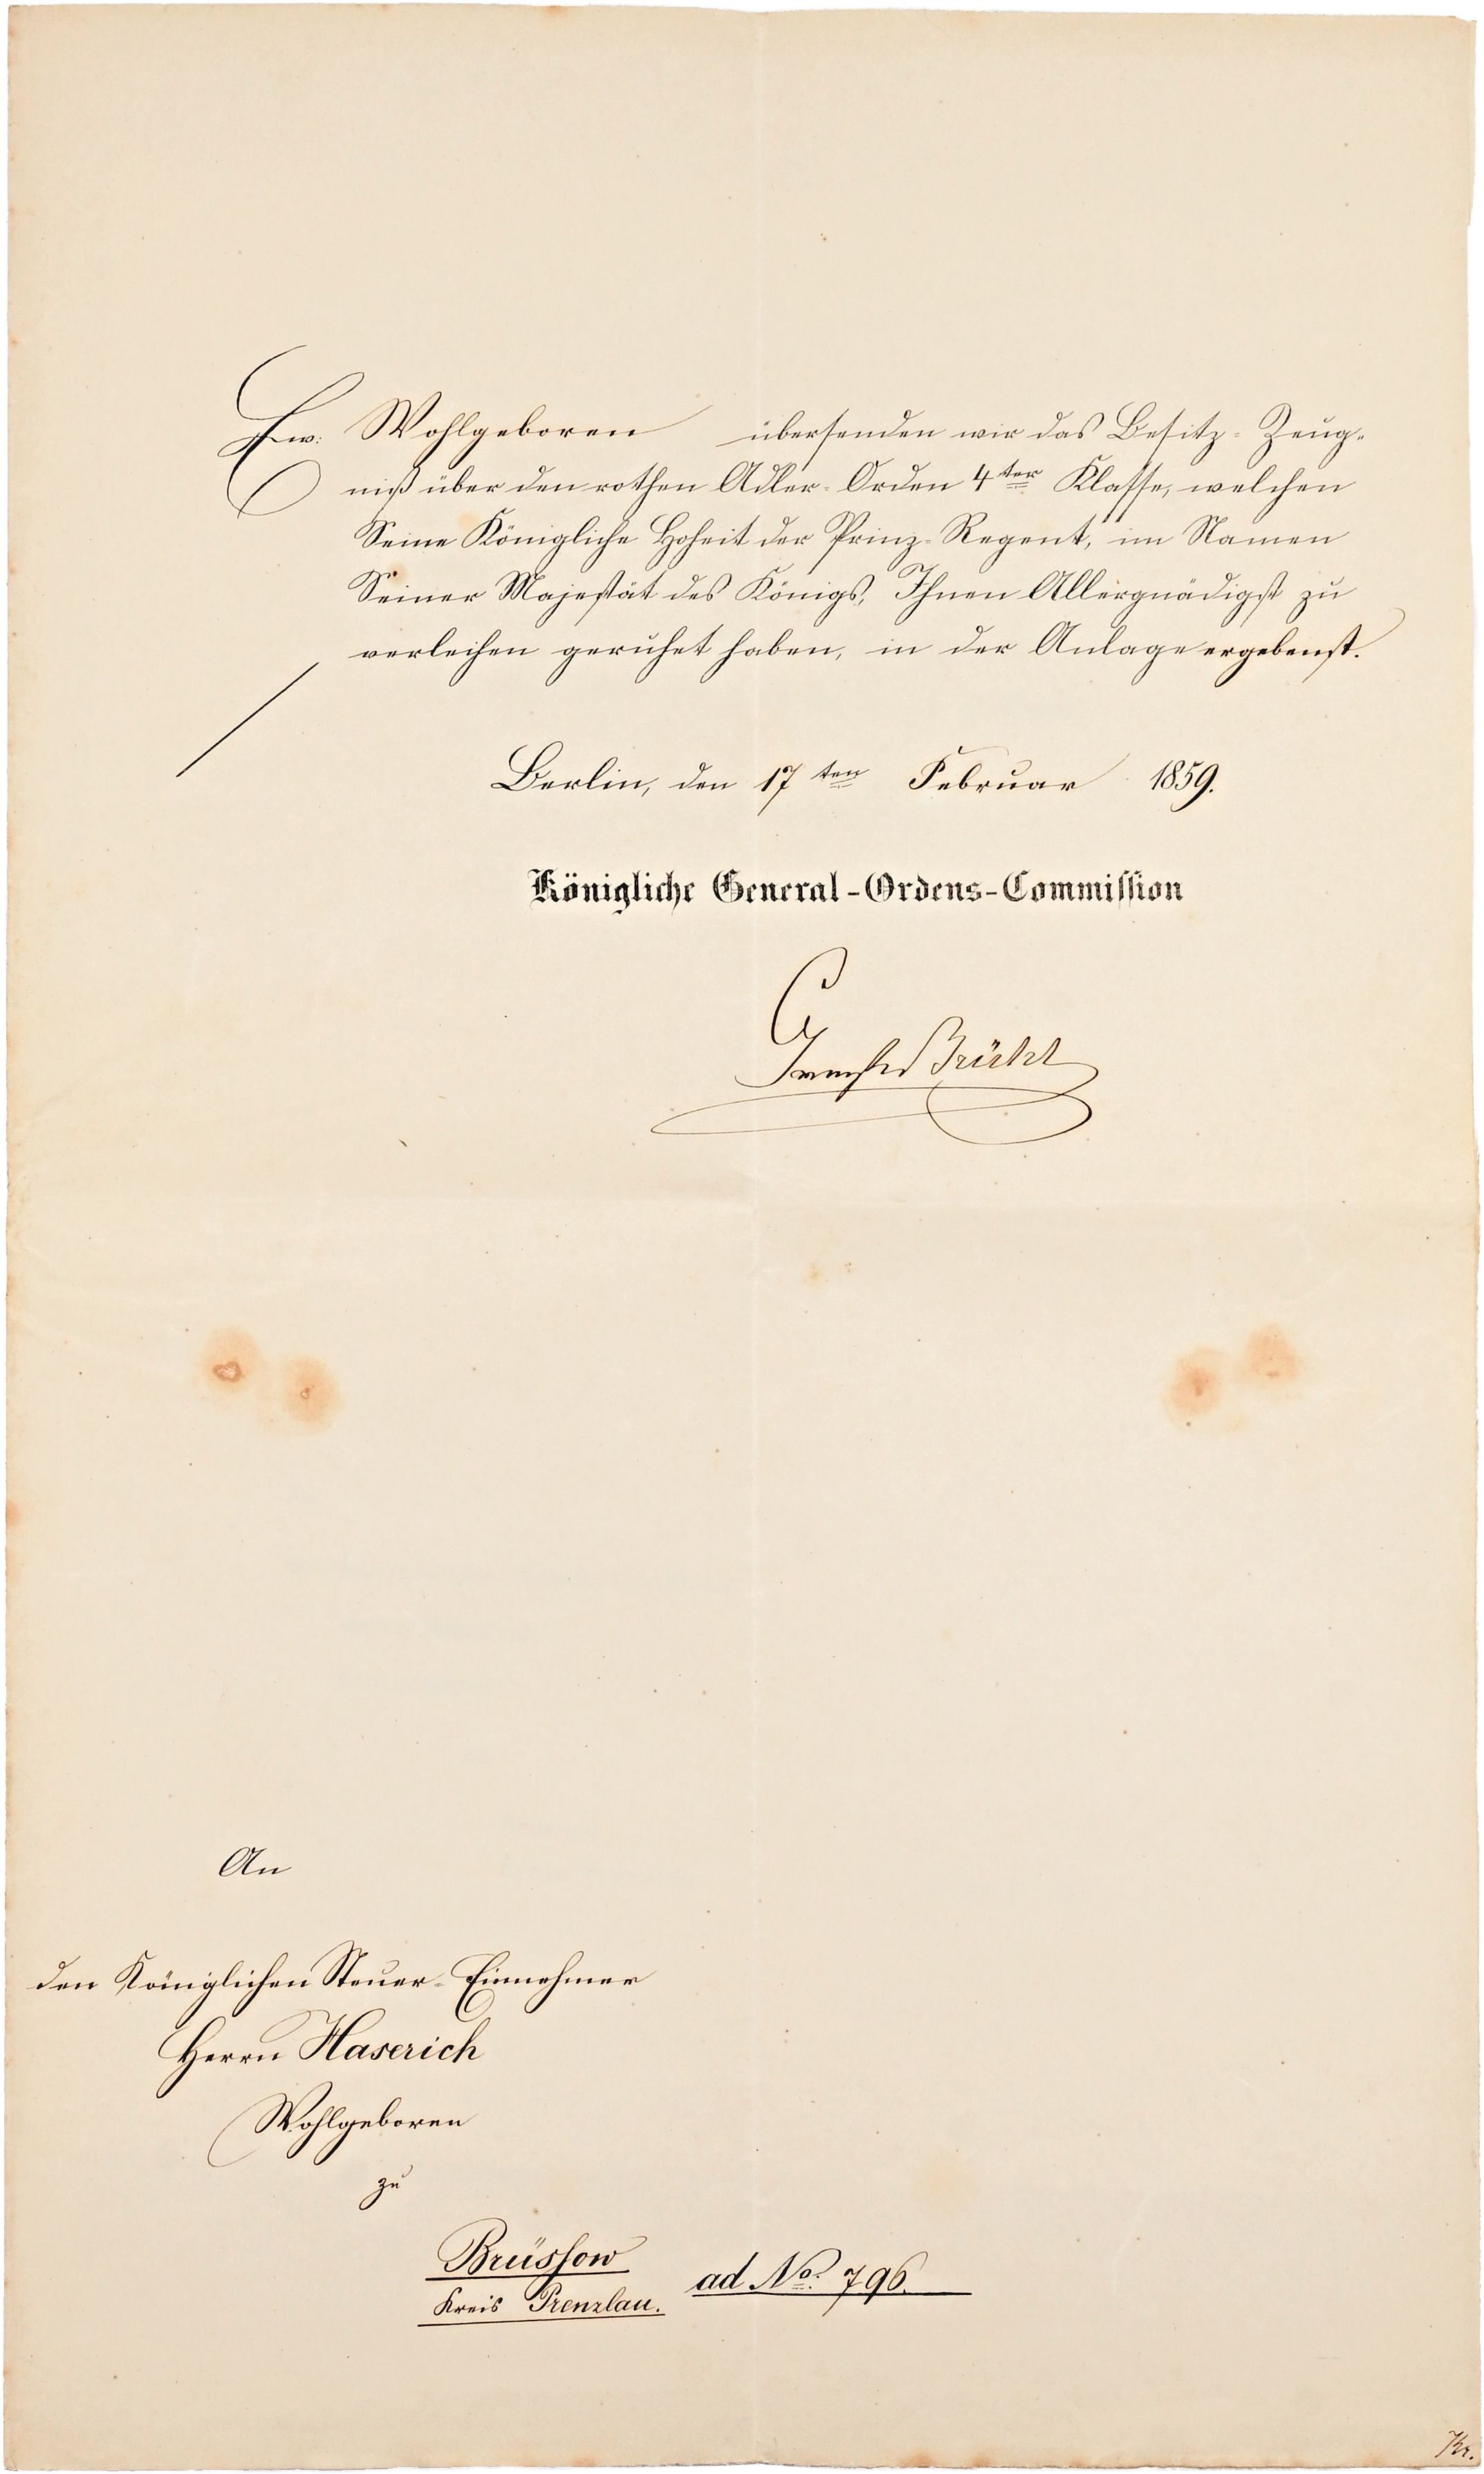 Ew. Wohlgeboren übersenden wir das Besitz-Zeug-
niß über den rothen Adler-Orden 4ter Klasse, welchen
Seine Königliche Hoheit der Prinz-Regent, im Namen
Seiner Majestät des Königs, Ihnen Allergnädigst zu
verleihen geruhet haben, in der Anlage ergebenst.
Berlin, den 17ten Februar 1859.
Königliche General-Ordens-Commission
An
den Königlichen Steuer-Einnehmer
Herrn Haserich
Wohlgeboren
zu
Brüssow
Kreis Prenzlau.
ad No. 796.